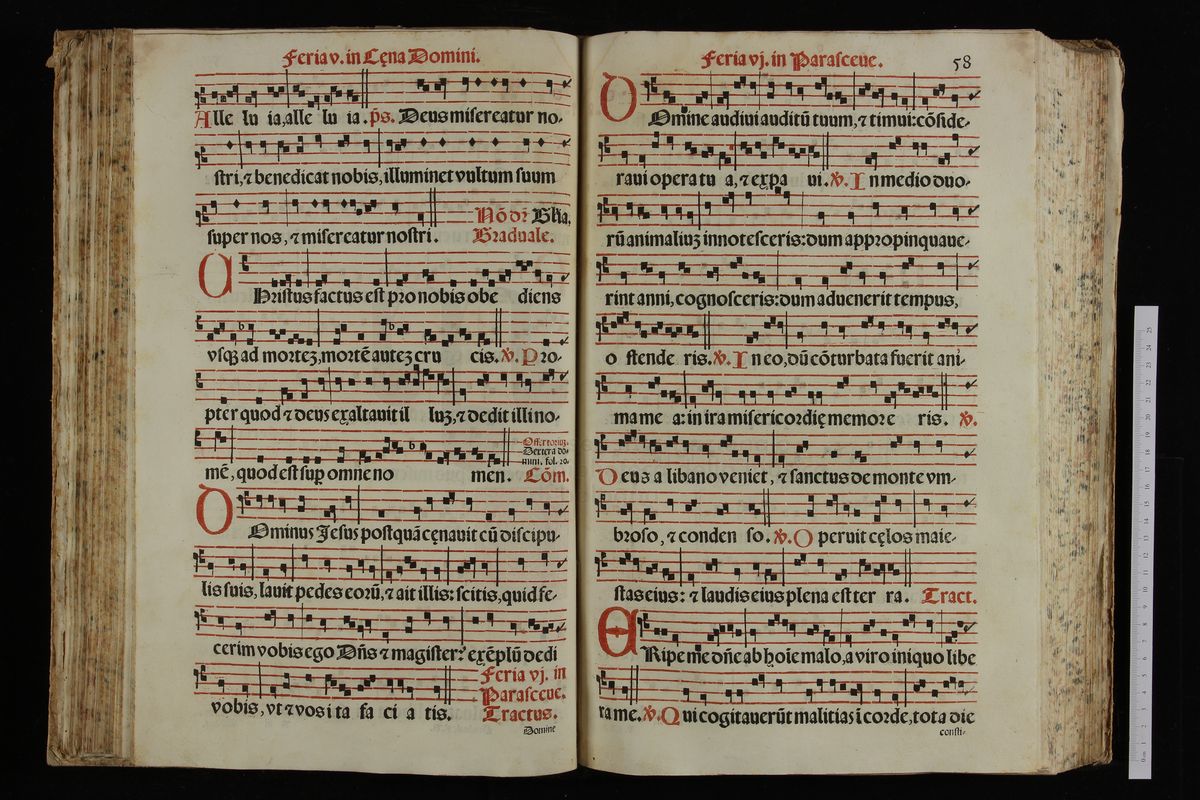 Feria v. in Cęna Domini.
Alle lu ia, alle lu ia. p̄s. Deus misereatur no-
stri, ⁊ benedicat nobis, illuminet vultum suum
Nō dr̄ Gl̄ia.
super nos, ⁊ misereatur nostri. Graduale.
CHristus factus est pro nobis obe diens
vsqꝫ ad morteꝫ, mortē auteꝫ cru cis. ℣. Pro-
pter quod ⁊ deus exaltauit il luꝫ, ⁊ dedit illi no-
Offertoriuꝫ.
Dextera do-
mini. fol.
mē, quod est sup̱ omne no men. Cōm.
DOminus Jesus postquā cęnauit cū discipu-
lis suis, lauit pedes eorū, ⁊ ait illis: scitis, quid fe-
cerim vobis ego Dn̄s ⁊ magister? exēplū dedi
Feria vj. in
Parasceue.
vobis, vt ⁊ vos i ta fa ci a tis. Tractus.
Domine
Feria vj. in Parasceue. 58
DOmine audiui auditū tuum, ⁊ timui: cōside-
raui opera tu a, ⁊ expa ui. ℣. In medio duo-
rū animaliuꝫ innotesceris: dum appropinquaue-
rint anni, cognosceris: dum aduenerit tempus,
o stende ris. ℣. In eo, dū cōturbata fuerit ani-
ma me a: in ira misericordię memore ris. ℣.
Deus a libano veniet, ⁊ sanctus de monte vm-
broso, ⁊ conden so. ℣. Operuit cęlos maie-
stas eius: ⁊ laudis eius plena est ter ra. Tract.
ERipe me dn̄e ab hoīe malo, a viro iniquo libe
ra me. ℣. Qui cogitauerūt malitias ī corde, tota die
consti-